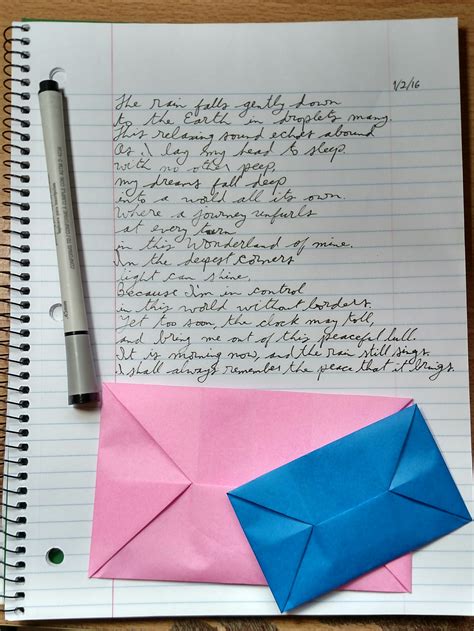 1/2/16
The rain falls gently down
to the Earth in droplets many.
This relaxing sound echos abound
As I lay my head to sleep
with no other peep,
my dreams fall deep
into a world all its own.
Where a journey unfurls
at every turn
in this Wonderland of mine.
In the deepest corners
light can shine,
Because I'm in control
in this world without borders.
Yet too soon, the clock may toll,
and bring me out of this peaceful lull.
It is morning now, and the rain still sings.
I shall always remember the peace that it brings.